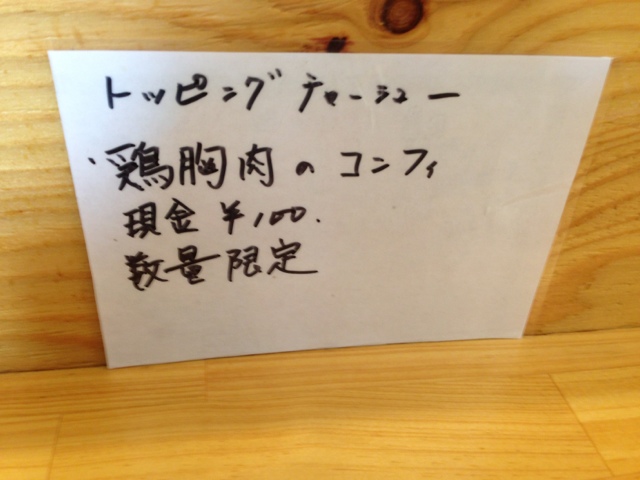 トッピングチャーシュー
・鶏胸肉のコンフィ
現金¥100.
数量限定